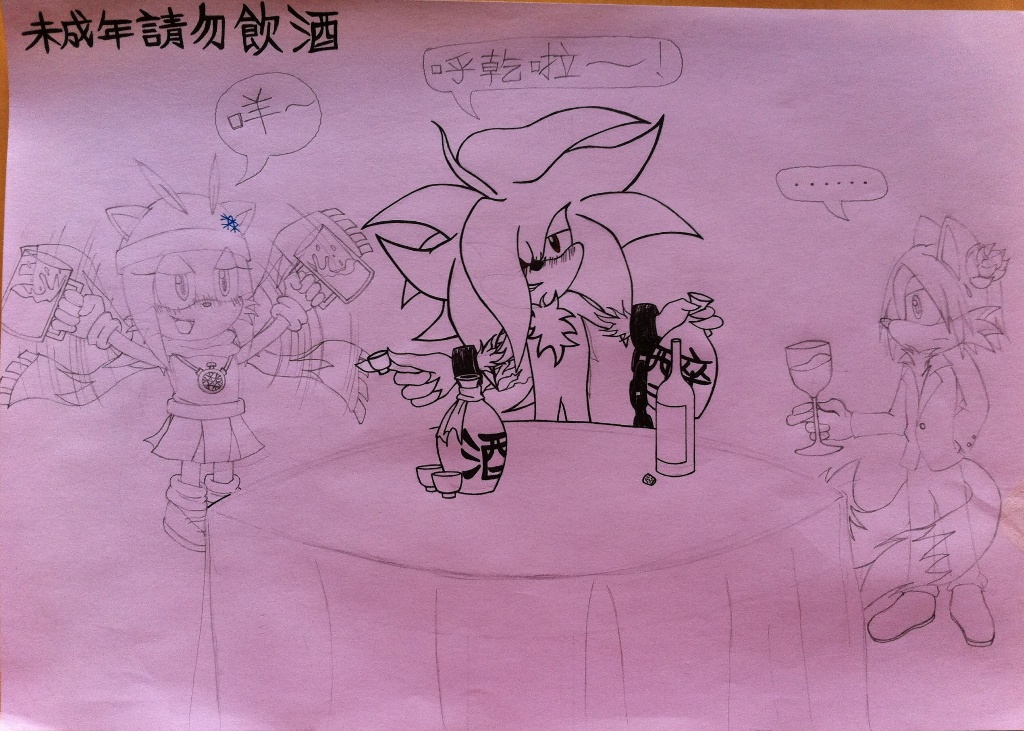 未成年請勿飲酒
咩~
呼乾啦~!
......
酒